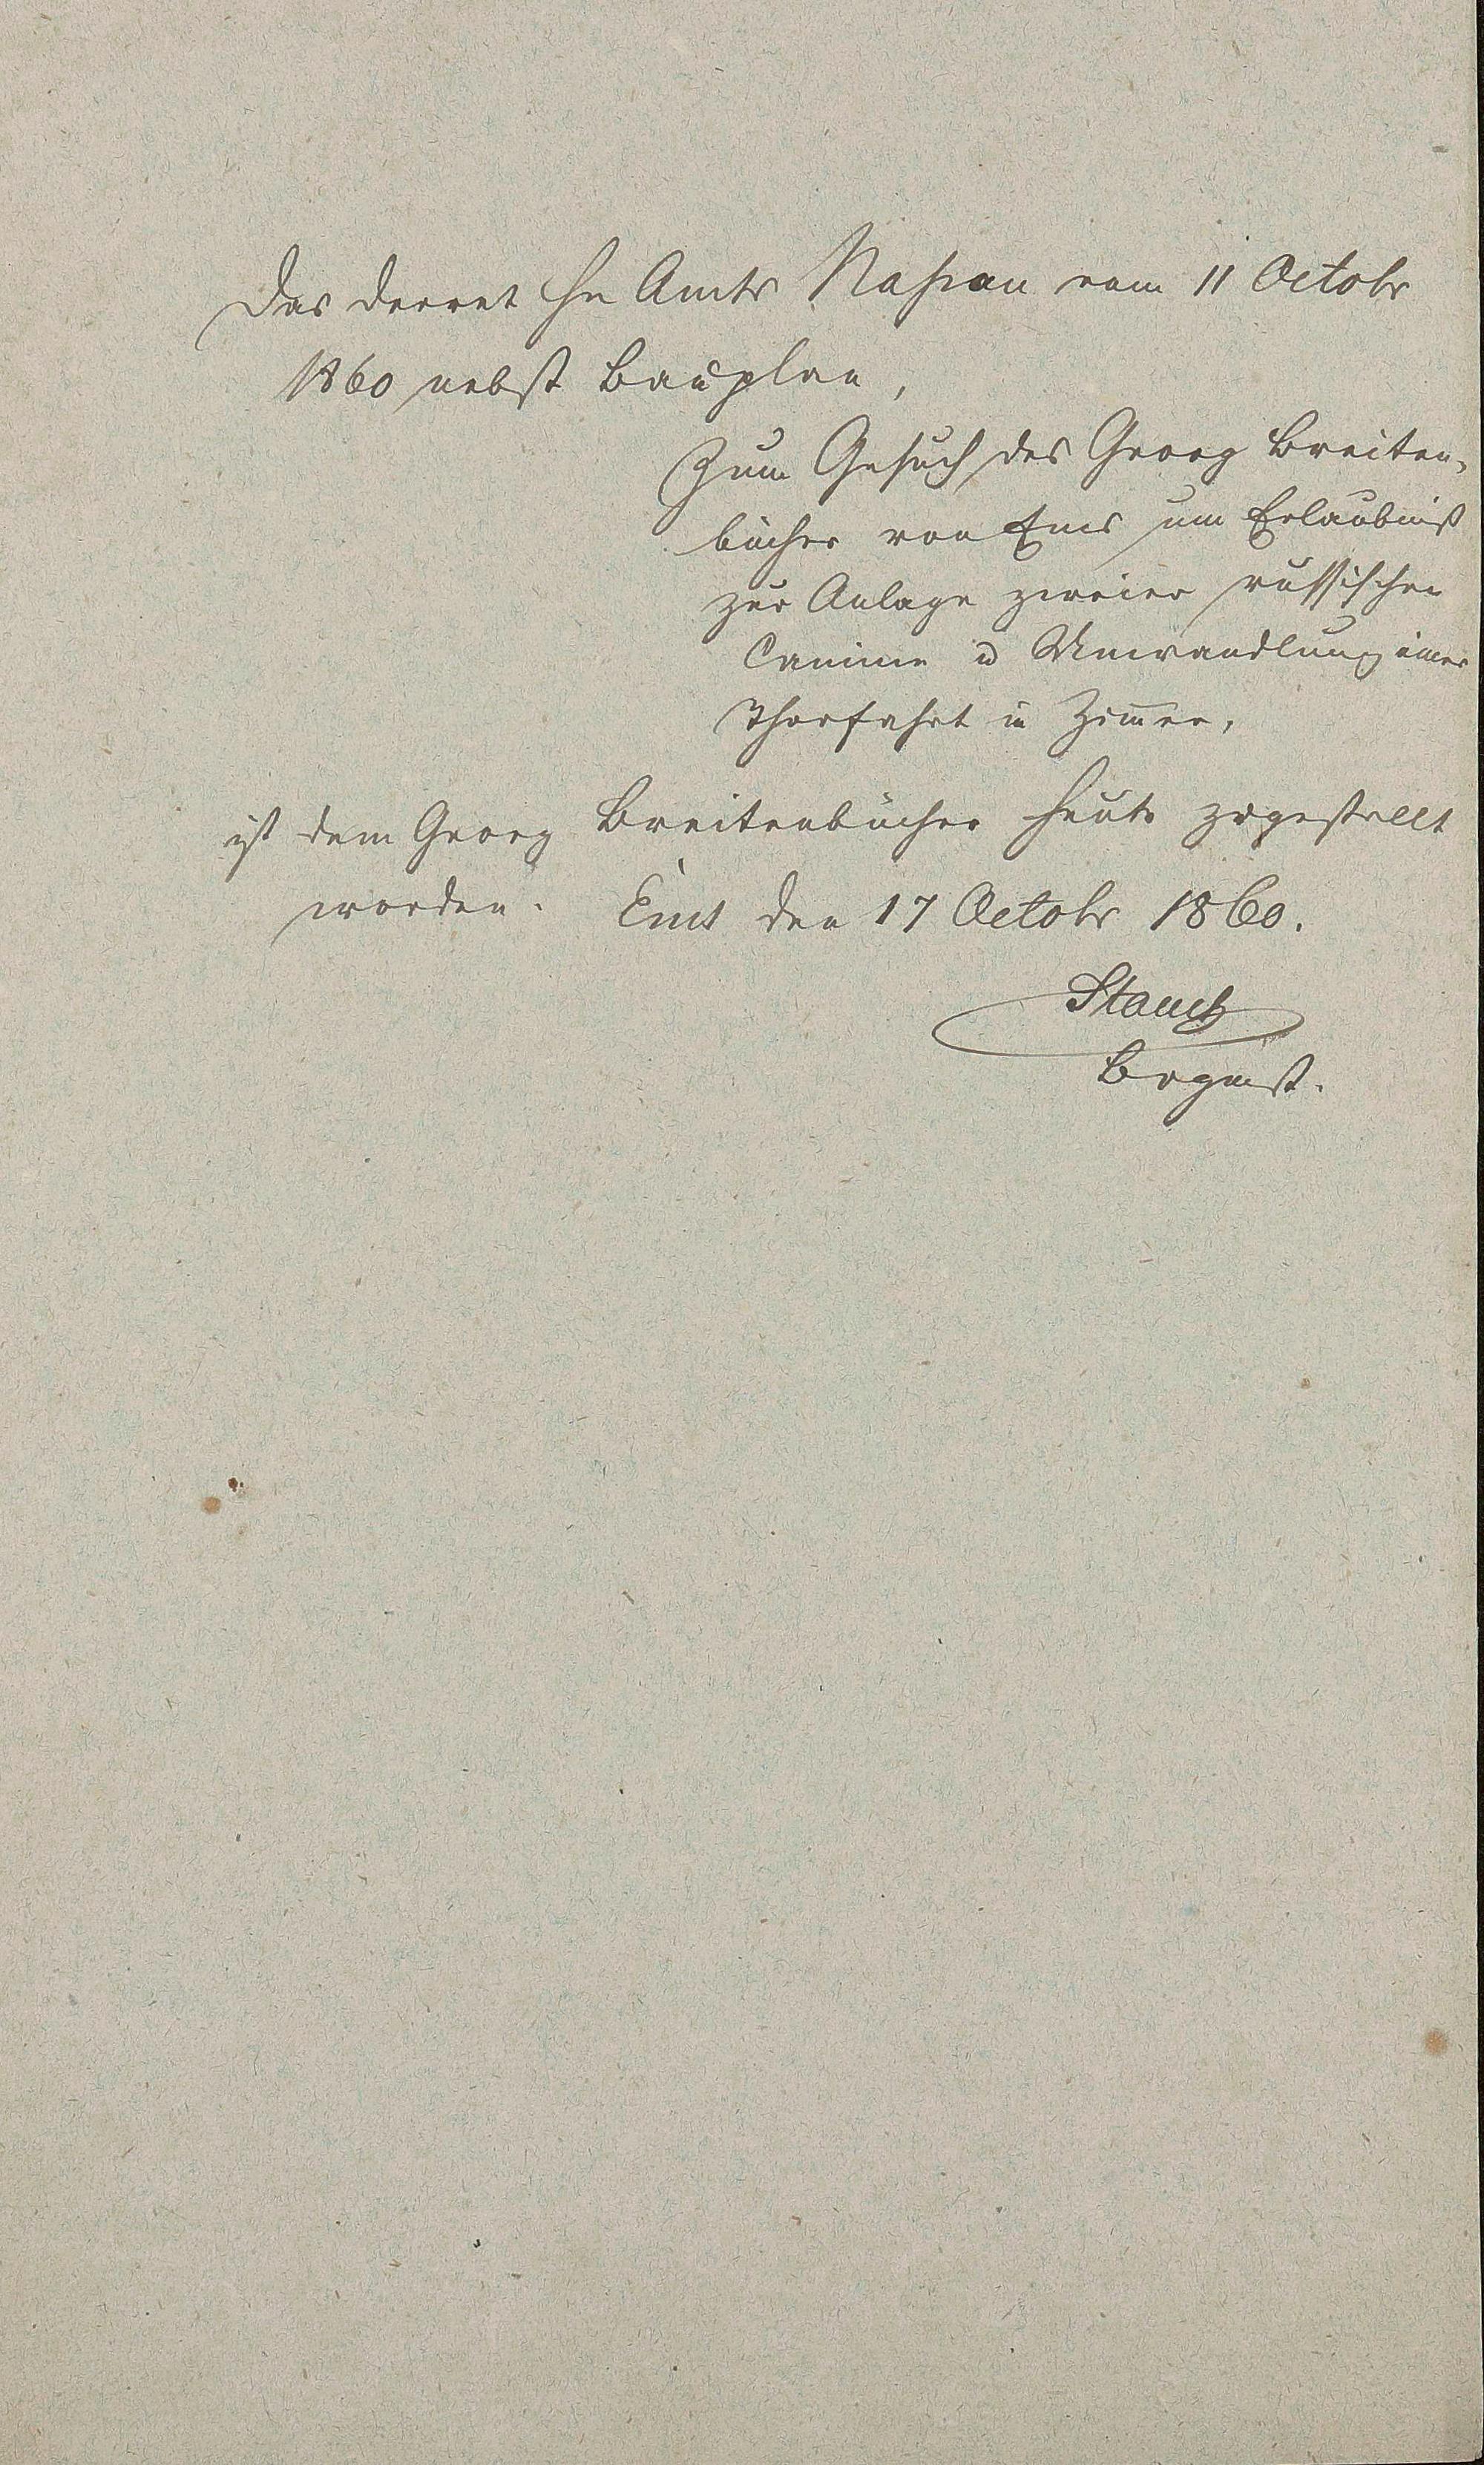 Das Decret Hn Amts Nassau vom 11 Octobr
1860 nebst Bauplan,
Zum Gesuch des Georg Breiten-
bücher von Ems um Erlaubniß
zur Anlage zweier russischen
Camine u Umwandlung einer
Thorfahrt in Zimer,
ist dem Georg Breitenbücher heute zugestellt
worden. Ems den 17 Octobr 1860.
Stauch
Brgmst.